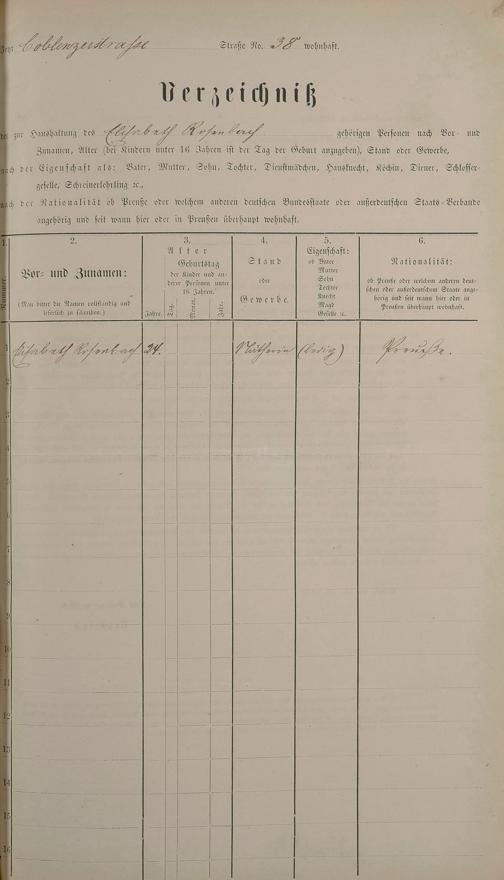 Coblenzerstraße Straße No. 38 wohnhaft.
Verzeichniß
zur Haushaltung des Elisabeth Rosenbach gehörigen Personen nach Vor- und
Zunamen, Alter (bei Kindern unter 16 Jahren ist der Tag der Geburt anzugeben), Stand oder Gewerbe,
nach der Eigenschaft als: Vater, Mutter, Sohn, Tochter, Dienstmädchen, Hausknecht, Köchin, Diener, Schlosser-
geselle, Schreinerlehrling ꝛc.,
nach der Nationalität ob Preuße oder welchem anderen deutschen Bundesstaate oder außerdeutschen Staats-Verbande
angehörig und seit wann hier oder in Preußen überhaupt wohnhaft.
1. 2. 3. 4. 5. 6.
Nummer.
Vor- und Zunamen:
(Man bittet die Namen vollständig und
leserlich zu schreiben.)
Alter
Geburtstag
der Kinder und an-
derer Personen unter
16 Jahren.
Jahre. Tag. Monat. Jahr.
Stand
oder
Gewerbe.
Eigenschaft:
ob Vater
Mutter
Sohn
Tochter
Knecht
Magd
Geselle ꝛc.
Nationalität:
ob Preuße oder welchem anderen deut-
schen oder außerdeutschen Staate ange-
hörig und seit wann hier oder in
Preußen überhaupt wohnhaft.
1 Elisabeth Rosenbach 24. Nätherin (ledig) Preueße.
2
3
4
5
6
7
8
9
10
11
12
13
14
15
16